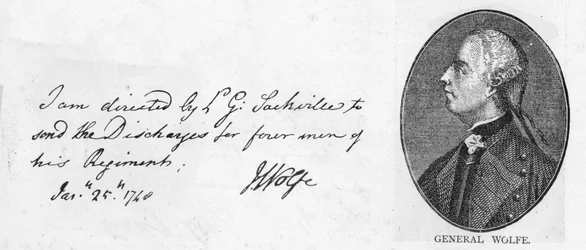 I am directed by Ld G: Sackville to
send the Discharges for four men of
his Regiment.
Jan.y 25.th 1748
JWolfe
GENERAL WOLFE.